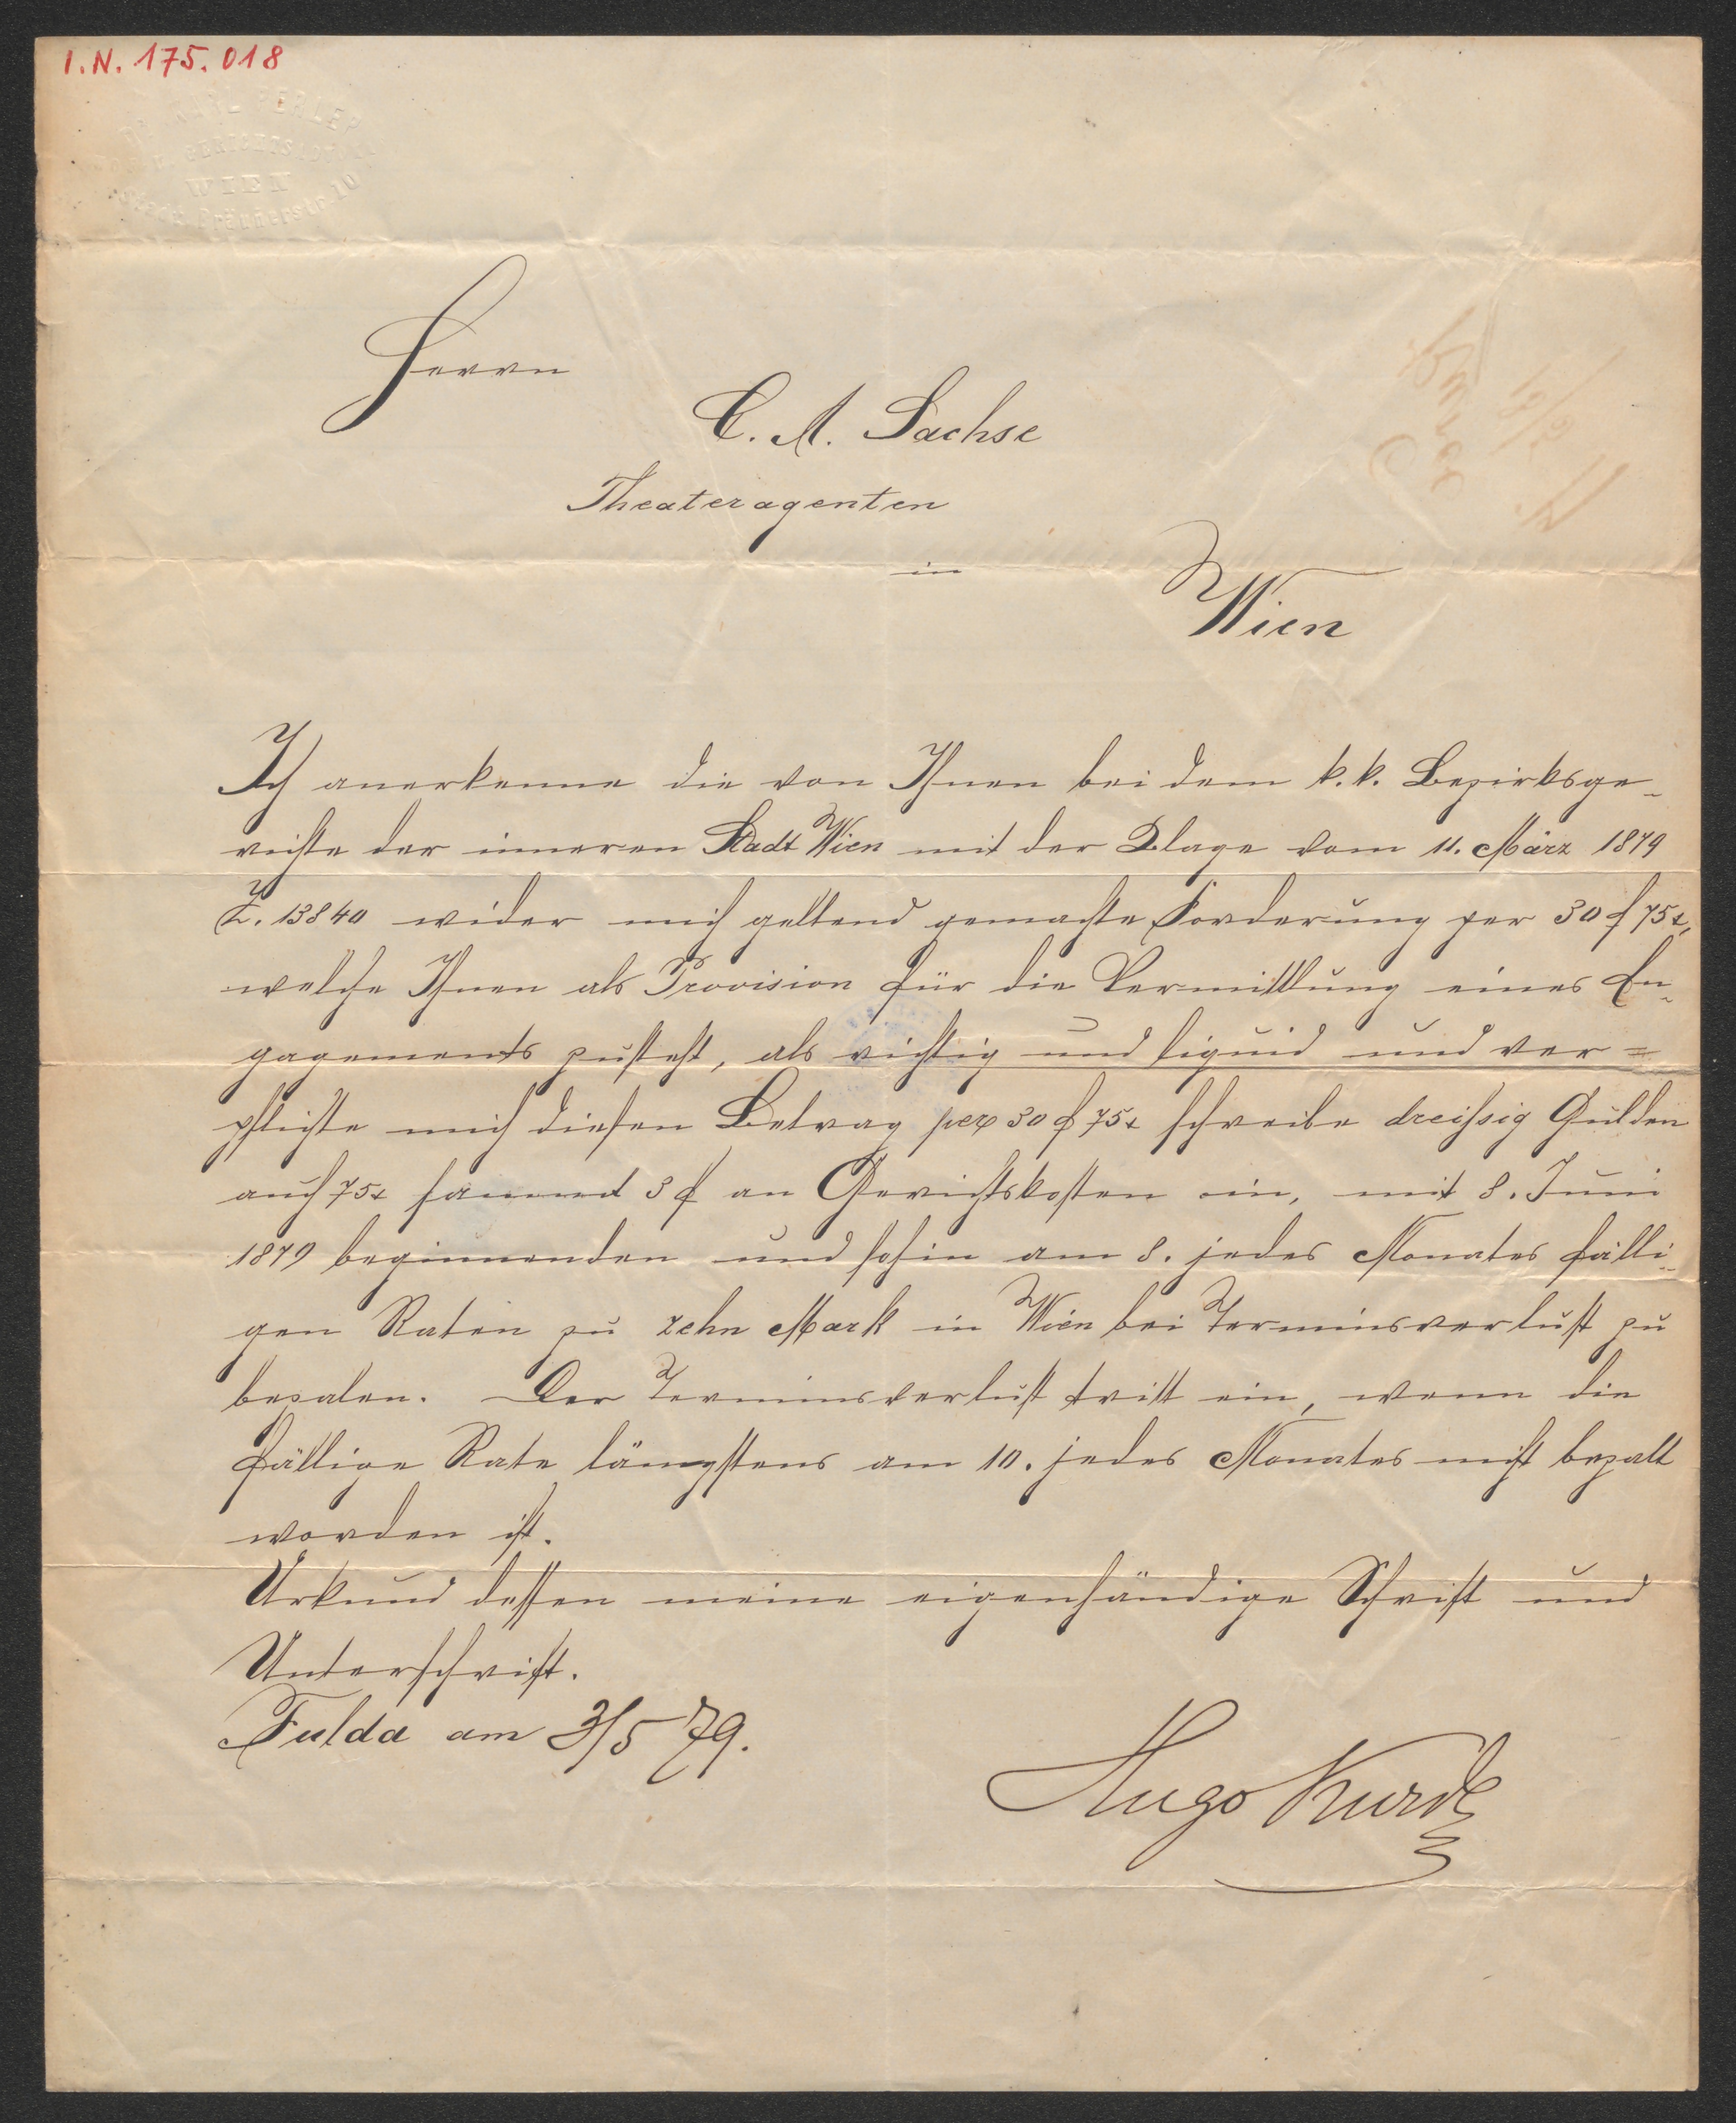 I.N. 175.018
WIEN
Herrn
C. A. Sachse
Theateragenten
in
Wien
Ich anerkenne die von Ihnen bei dem k.k. Bezirksge-
richte der inneren Stadt Wien mit der Klage vom 11. März 1879
Z. 13840 wider mich geltend gemachte Forderung per 30 f 75x,
welche Ihnen als Provision für die Vermittlung eines En-
gagements zusteht, als richtig und liquid und ver=
pflichte mich diesen Betrag per 30 f 75x schreibe dreissig Gulden
auch 75x sammt 3 f an Gerichtskosten in, mit 8. Juni
1879 beginnenden und sohin am 8. jedes Monates fälli-
gen Raten zu zehn Mark in Wien bei Terminsverlust zu
bezalen. Der Terminsverlust tritt ein, wenn die
fällige Rate längstens am 10. jedes Monates nicht bezalt
worden ist.
Urkund dessen meine eigenhändige Schrift und
Unterschrift.
Fulda am 3/5 79.
Hugo